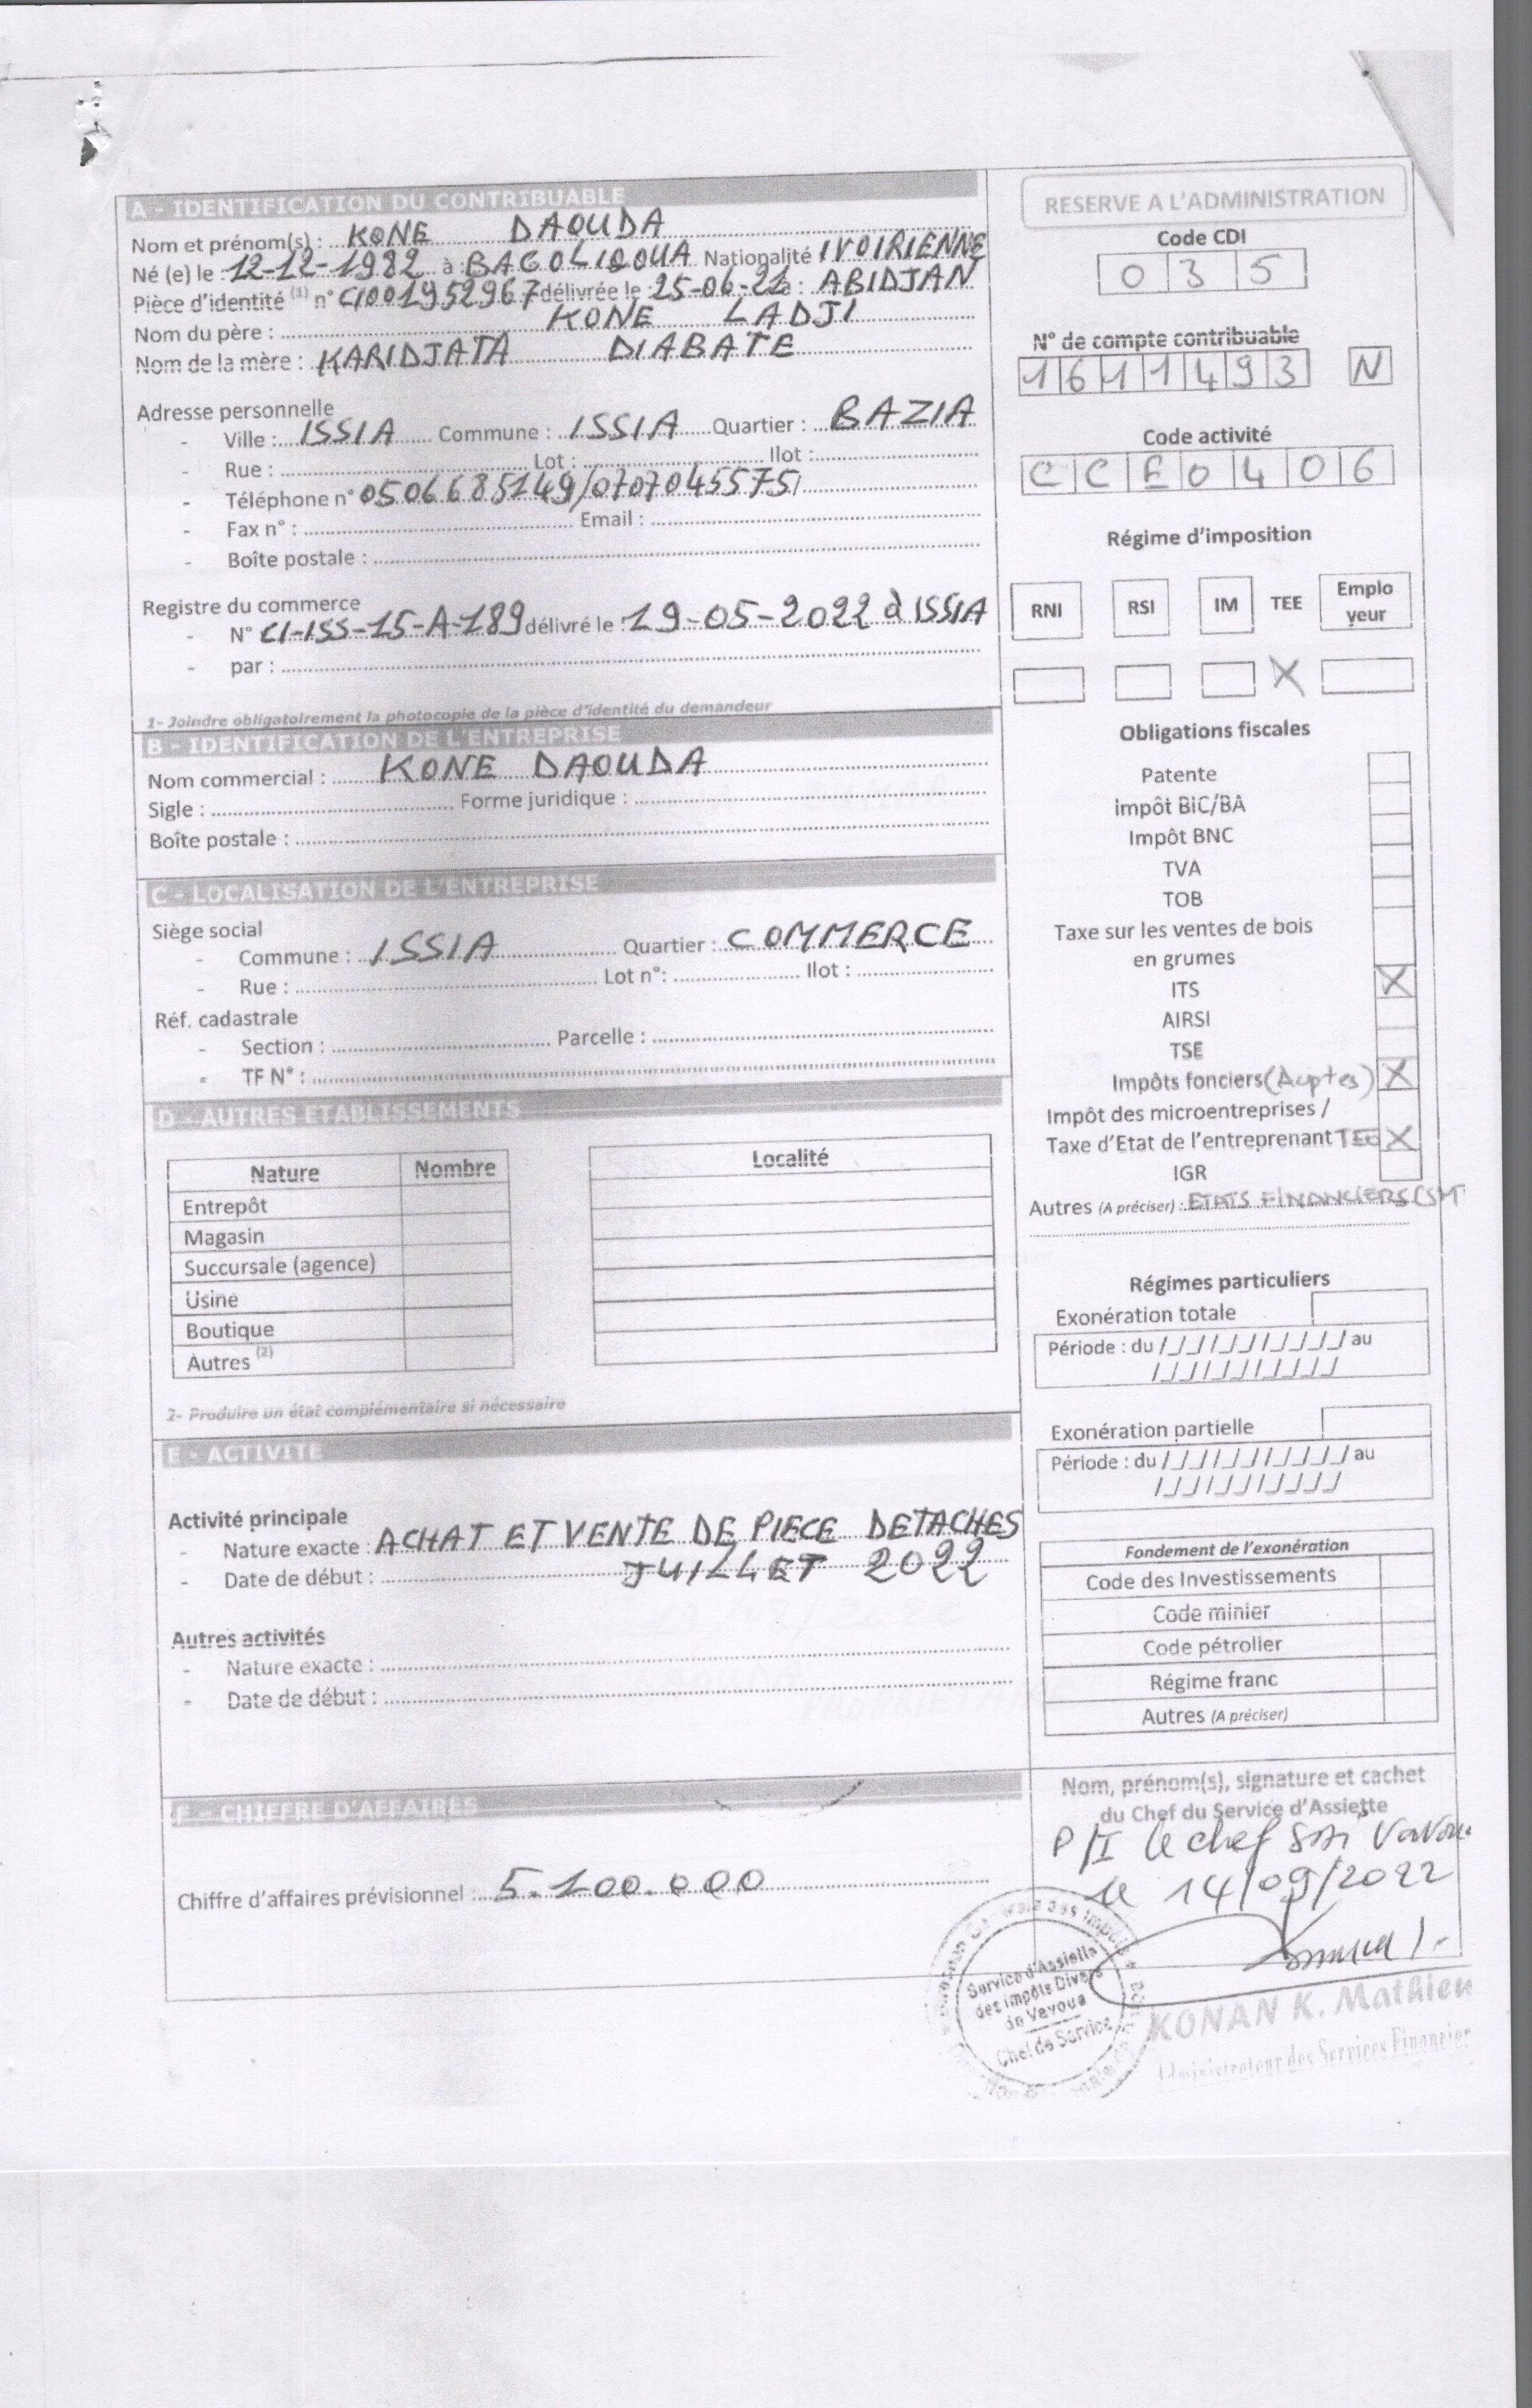 A - IDENTIFICATION DU CONTRIBUABLE
Nom et prénom(s) : KONE DAOUDA
Né (e) le : 12-12-1982 à : Nationalité IVOIRIENNE
Pièce d'identité (1) n° CI001952967 délivrée le : 25-06-21 à : ABIDJAN
Nom du père : KONE LADJI
Nom de la mère : KARIDJATA DIABATE
Adresse personnelle
- Ville : ISSIA Commune : ISSIA Quartier : BAZIA
- Rue : Lot : Ilot :
- Téléphone n° 0506685149/0707045575
- Fax n° : Email :
- Boîte postale :
Registre du commerce
- N° CI-ISS-15-A-189 délivré le : 19-05-2022 à ISSIA
- par :
1- Joindre obligatoirement la photocopie de la pièce d'identité du demandeur
B - IDENTIFICATION DE L'ENTREPRISE
Nom commercial : KONE DAOUDA
Sigle : Forme juridique :
Boîte postale :
C - LOCALISATION DE L'ENTREPRISE
Siège social
- Commune : ISSIA Quartier : COMMERCE
- Rue : Lot n°: Ilot :
Réf. cadastrale
- Section : Parcelle :
- TF N° :
D - AUTRES ETABLISSEMENTS
Nature Nombre Localité
Entrepôt
Magasin
Succursale (agence)
Usine
Boutique
Autres (2)
2- Produire un état complémentaire si nécessaire
E - ACTIVITE
Activité principale
- Nature exacte : ACHAT ET VENTE DE PIECE DETACHES
- Date de début : JUILLET 2022
Autres activités
- Nature exacte :
- Date de début :
F - CHIFFRE D'AFFAIRES
Chiffre d'affaires prévisionnel : 5.100.000
RESERVE A L'ADMINISTRATION
Code CDI
0 3 5
N° de compte contribuable
1 6 1 1 1 4 9 3 N
Code activité
C C E 0 4 0 6
Régime d'imposition
RNI RSI IM TEE Emplo
yeur
X
Obligations fiscales
Patente
impôt BIC/BA
Impôt BNC
TVA
TOB
Taxe sur les ventes de bois
en grumes
ITS X
AIRSI
TSE
Impôts fonciers X
Impôt des microentreprises /
Taxe d'Etat de l'entreprenant TEE X
IGR
Autres (A préciser) : ETATS FINANCIERS (SMT
Régimes particuliers
Exonération totale
Période : du /_/_//_/_//_/_/_/_/ au
/_/_//_/_//_/_/_/_/
Exonération partielle
Période : du /_/_//_/_//_/_/_/_/ au
/_/_//_/_//_/_/_/_/
Fondement de l'exonération
Code des Investissements
Code minier
Code pétrolier
Régime franc
Autres (A préciser)
Nom, prénom(s), signature et cachet
du Chef du Service d'Assiette
P/I le chef Vavoua
le 14/09/2022
Service d'Assiette
des Impôts Divers
de Vavoua
Chef de Service
KONAN K. Mathieu
Administrateur des Services Financier